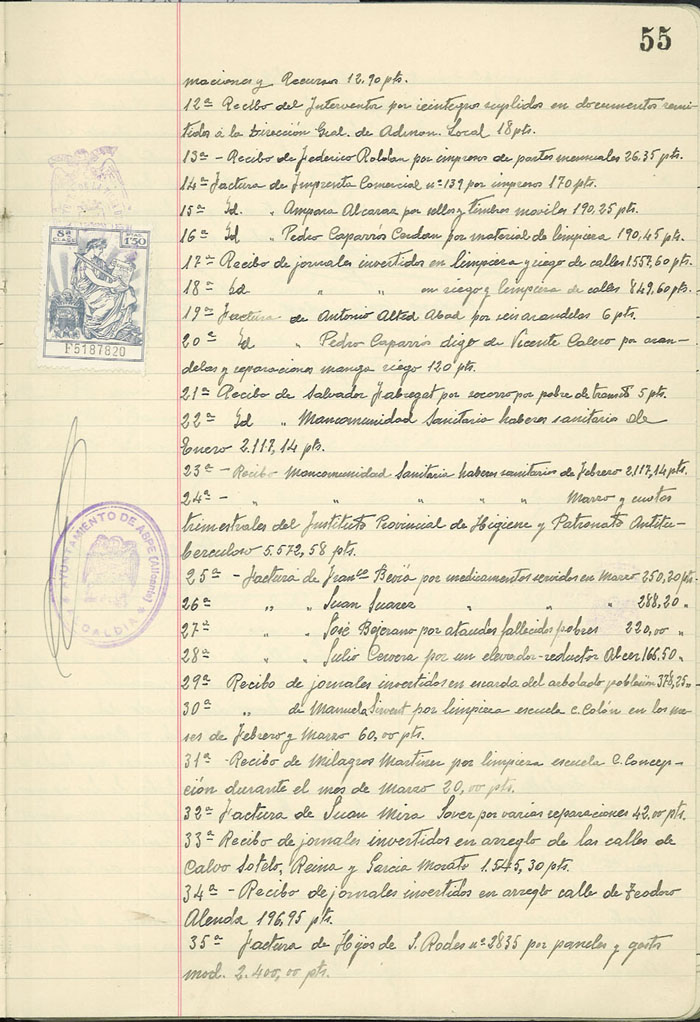 55
maciones y Recursos 12,90 pts.
12ª Recibo del Interventor por reintegros suplidos en documentos remi-
tidos á la Dirección Gral. de Admon. Local 18 pts.
13ª - Recibo de Federico Roldan por impresos de partes mensuales 26.35 pts.
14ª Factura de Imprenta Comercial nº 139 por impresos 170 pts.
15ª Id. " Amparo Alcaraz por sellos y timbres moviles 190,25 pts.
16ª Id " Pedro Caparrós Cerdan por material de limpieza 190,45 pts.
17ª Recibo de jornales invertidos en limpieza y riego de calles 1557,60 pts.
18ª Id " " en riego y limpieza de calles 849,60 pts.
19ª Factura de Antonio Alted Abad por seis arandelas 6 pts.
20ª Id " Pedro Caparrós digo de Vicente Calero por aran-
delas y reparaciones manga riego 120 pts.
21ª Recibo de Salvador Fabregat por socorro por pobre de transito 5 pts.
22ª Id " Mancomunidad Sanitaria haberes sanitarios de
Enero 2.117,14 pts.
23ª - Recibo Mancomunidad Sanitaria haberes sanitarios de Febrero 2,117,14 pts.
24ª - " " " " " Marzo y cuotas
trimestrales del Instituto Provincial de Higiene y Patronato Antitu-
berculoso 5.572,58 pts.
25ª - Factura de Franco Beviá por medicamentos servidos en Marzo 250,20 pts.
26ª " " Juan Suarez " " " 288,20 "
27ª " " José Bejerano por ataudes fallecidos pobres 220,00 "
28ª " " Julio Cervera por un elevador-reductor Alcer 166.50 "
29ª Recibo de jornales invertidos en escarda del arbolado población 378,25 "
30ª " de Manuela Sirvent por limpieza escuela c. Colón en los me-
ses de Febrero y Marzo 60,00 pts.
31ª - Recibo de Milagros Martinez por limpieza escuela C. Concep-
ción durante el mes de Marzo 20,00 pts.
32ª Factura de Juan Mira Sover por varias reparaciones 42,00 pts.
33ª Recibo de jornales invertidos en arreglo de las calles de
Calvo Sotelo, Reina y Garcia Morato 1.545,30 pts.
34ª - Recibo de jornales invertidos en arreglo calle de Teodoro
Alenda 196,95 pts.
35ª Factura de Hijos de J. Rodes nº 2835 por paneles y gasts
mod. 2.400,00 pts.
8ª CLASE
PTAS. 1'50
F5187820
AYUNTAMIENTO DE ASPE (Alicante)
ALCALDIA